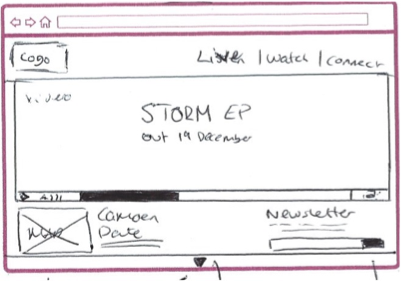 Logo
Listen | Watch | Connect
Video
STORM EP
out 19 December
Camden
Date
Newsletter